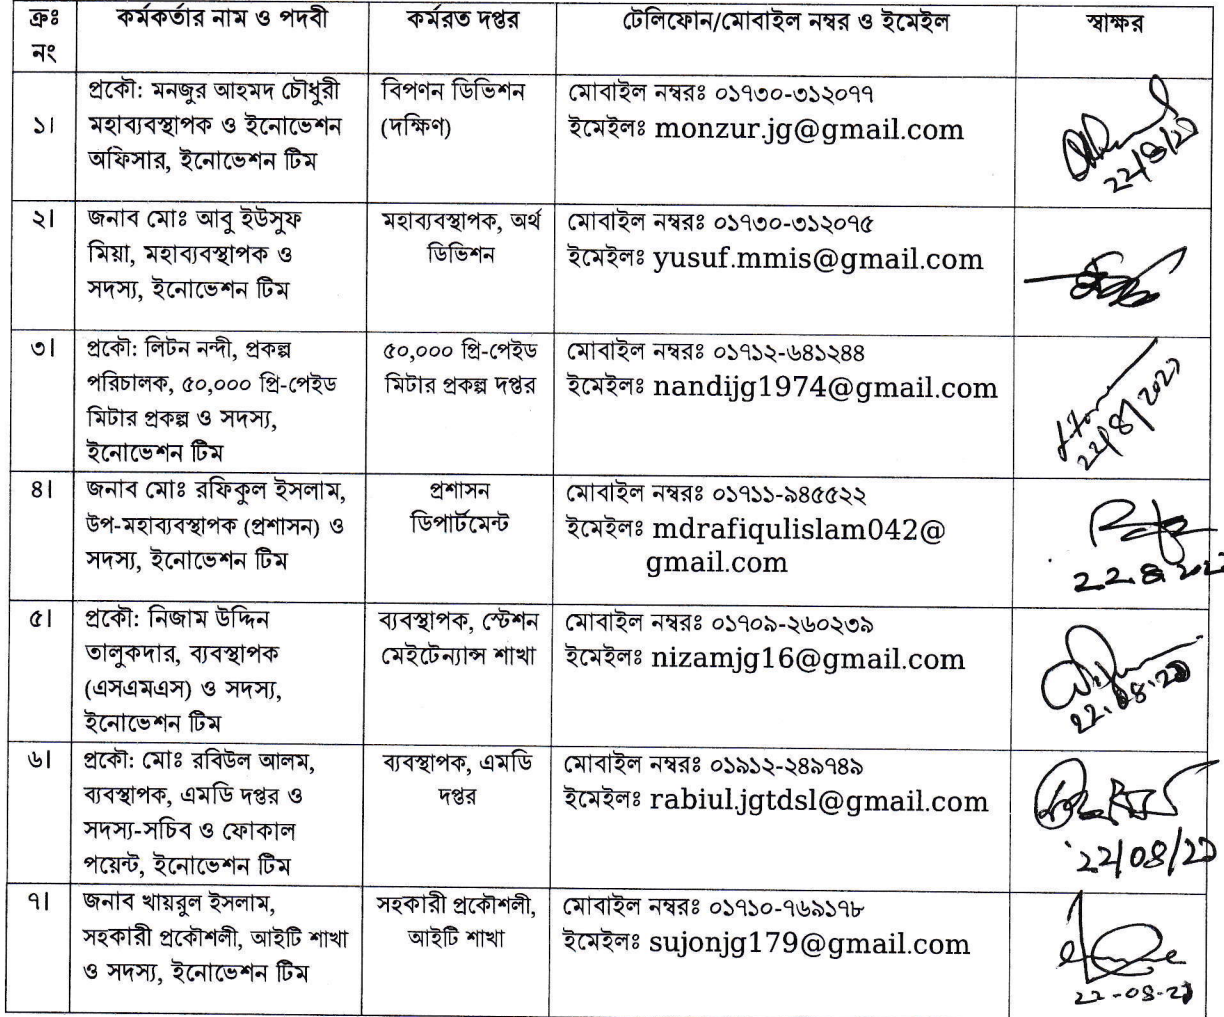 ক্রঃ নং	কর্মকর্তার নাম ও পদবী	কর্মরত দপ্তর	টেলিফোন/মোবাইল নম্বর ও ইমেইল	স্বাক্ষর
১।
প্রকৌ: মনজুর আহমদ চৌধুরী
মহাব্যবস্থাপক ও ইনোভেশন
অফিসার, ইনোভেশন টিম
বিপণন ডিভিশন
(দক্ষিণ)
মোবাইল নম্বরঃ ০১৭৩০-৩১২০৭৭
ইমেইলঃ monzur.jg@gmail.com
২।
জনাব মোঃ আবু ইউসুফ
মিয়া, মহাব্যবস্থাপক ও
সদস্য, ইনোভেশন টিম
মহাব্যবস্থাপক, অর্থ
ডিভিশন
মোবাইল নম্বরঃ ০১৭৩০-৩১২০৭৫
ইমেইলঃ yusuf.mmis@gmail.com
৩।
প্রকৌ: লিটন নন্দী, প্রকল্প
পরিচালক, ৫০,০০০ প্রি-পেইড
মিটার প্রকল্প ও সদস্য,
ইনোভেশন টিম
৫০,০০০ প্রি-পেইড
মিটার প্রকল্প দপ্তর
মোবাইল নম্বরঃ ০১৭১২-৬৪১২৪৪
ইমেইলঃ nandijg1974@gmail.com
22/8/2027
৪।
জনাব মোঃ রফিকুল ইসলাম,
উপ-মহাব্যবস্থাপক (প্রশাসন) ও
সদস্য, ইনোভেশন টিম
প্রশাসন
ডিপার্টমেন্ট
মোবাইল নম্বরঃ ০১৭১১-৯৪৫৫২২
ইমেইলঃ mdrafiqulislam042@
gmail.com
৫।
প্রকৌ: নিজাম উদ্দিন
তালুকদার, ব্যবস্থাপক
(এসএমএস) ও সদস্য,
ইনোভেশন টিম
ব্যবস্থাপক, স্টেশন
মেইটেন্যান্স শাখা
মোবাইল নম্বরঃ ০১৭০৯-২৬০২৩৯
ইমেইলঃ nizamjg16@gmail.com
৬।
প্রকৌ: মোঃ রবিউল আলম,
ব্যবস্থাপক, এমডি দপ্তর ও
সদস্য-সচিব ও ফোকাল
পয়েন্ট, ইনোভেশন টিম
ব্যবস্থাপক, এমডি
দপ্তর
মোবাইল নম্বরঃ ০১৯১২-২৪৯৭৪৯
ইমেইলঃ rabiul.jgtdsl@gmail.com
৭।
জনাব খায়রুল ইসলাম,
সহকারী প্রকৌশলী, আইটি শাখা
ও সদস্য, ইনোভেশন টিম
সহকারী প্রকৌশলী,
আইটি শাখা
মোবাইল নম্বরঃ ০১৭১০-৭৬৯১৭৮
ইমেইলঃ sujonjg179@gmail.com